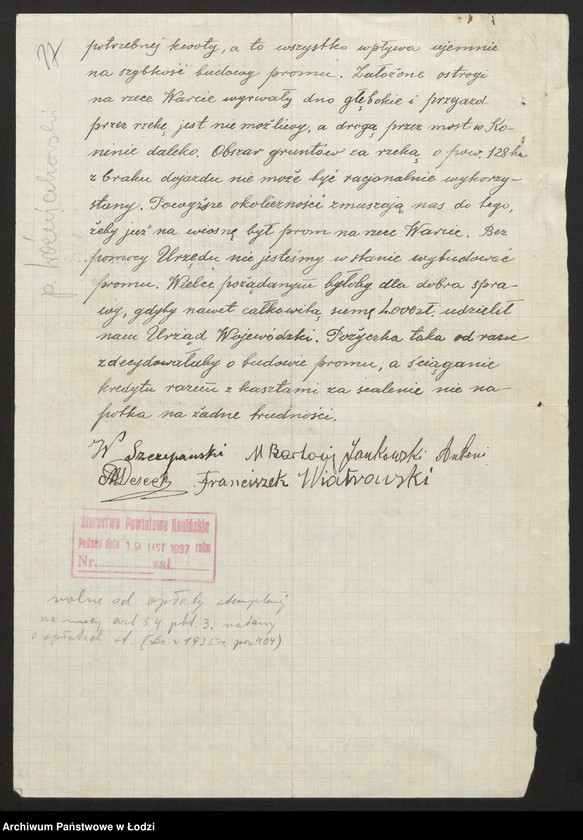 potrzebnej kwoty, a to wszystko wpływa ujemnie
na szybkość budowy promu. Założone ostrogi
na rzece Warcie wyrwały dno głębokie i przejazd
przez rzekę jest nie możliwy, a drogą przez most w Ko-
ninie daleko. Obszar gruntów za rzeką o pow. 128 ha
z braku dojazdu nie może być racjonalnie wykorzy-
stany. Powyższe okoliczności zmuszają nas do tego,
żeby już na wiosnę był prom na rzece Warcie. Bez
pomocy Urzędu nie jesteśmy w stanie wybudować
promu. Wielce pożądanym byłoby dla dobra spra-
wy, gdyby nawet całkowitą sumę 4.000 zł. udzielił
nam Urząd Wojewódzki. Pożyczka taka od razu
zdecydowałaby o budowie promu, a ściąganie
kredytu razem z kosztami za scalenie nie na-
potka na żadne trudności.
W Szczepański M Bartosij Jankowski Antoni
Franciszek Wiatrowski
Starostwo Powiatowe Konińskie
Podano dnia 19 LIST 1937 roku
Nr. zał
wolne od opłaty stemplowej
na mocy art 54 pkt. 3. ustawy
o opłatach st. (Dz. z 1935 r. poz 404)
p.
Archiwum Państwowe w Łodzi